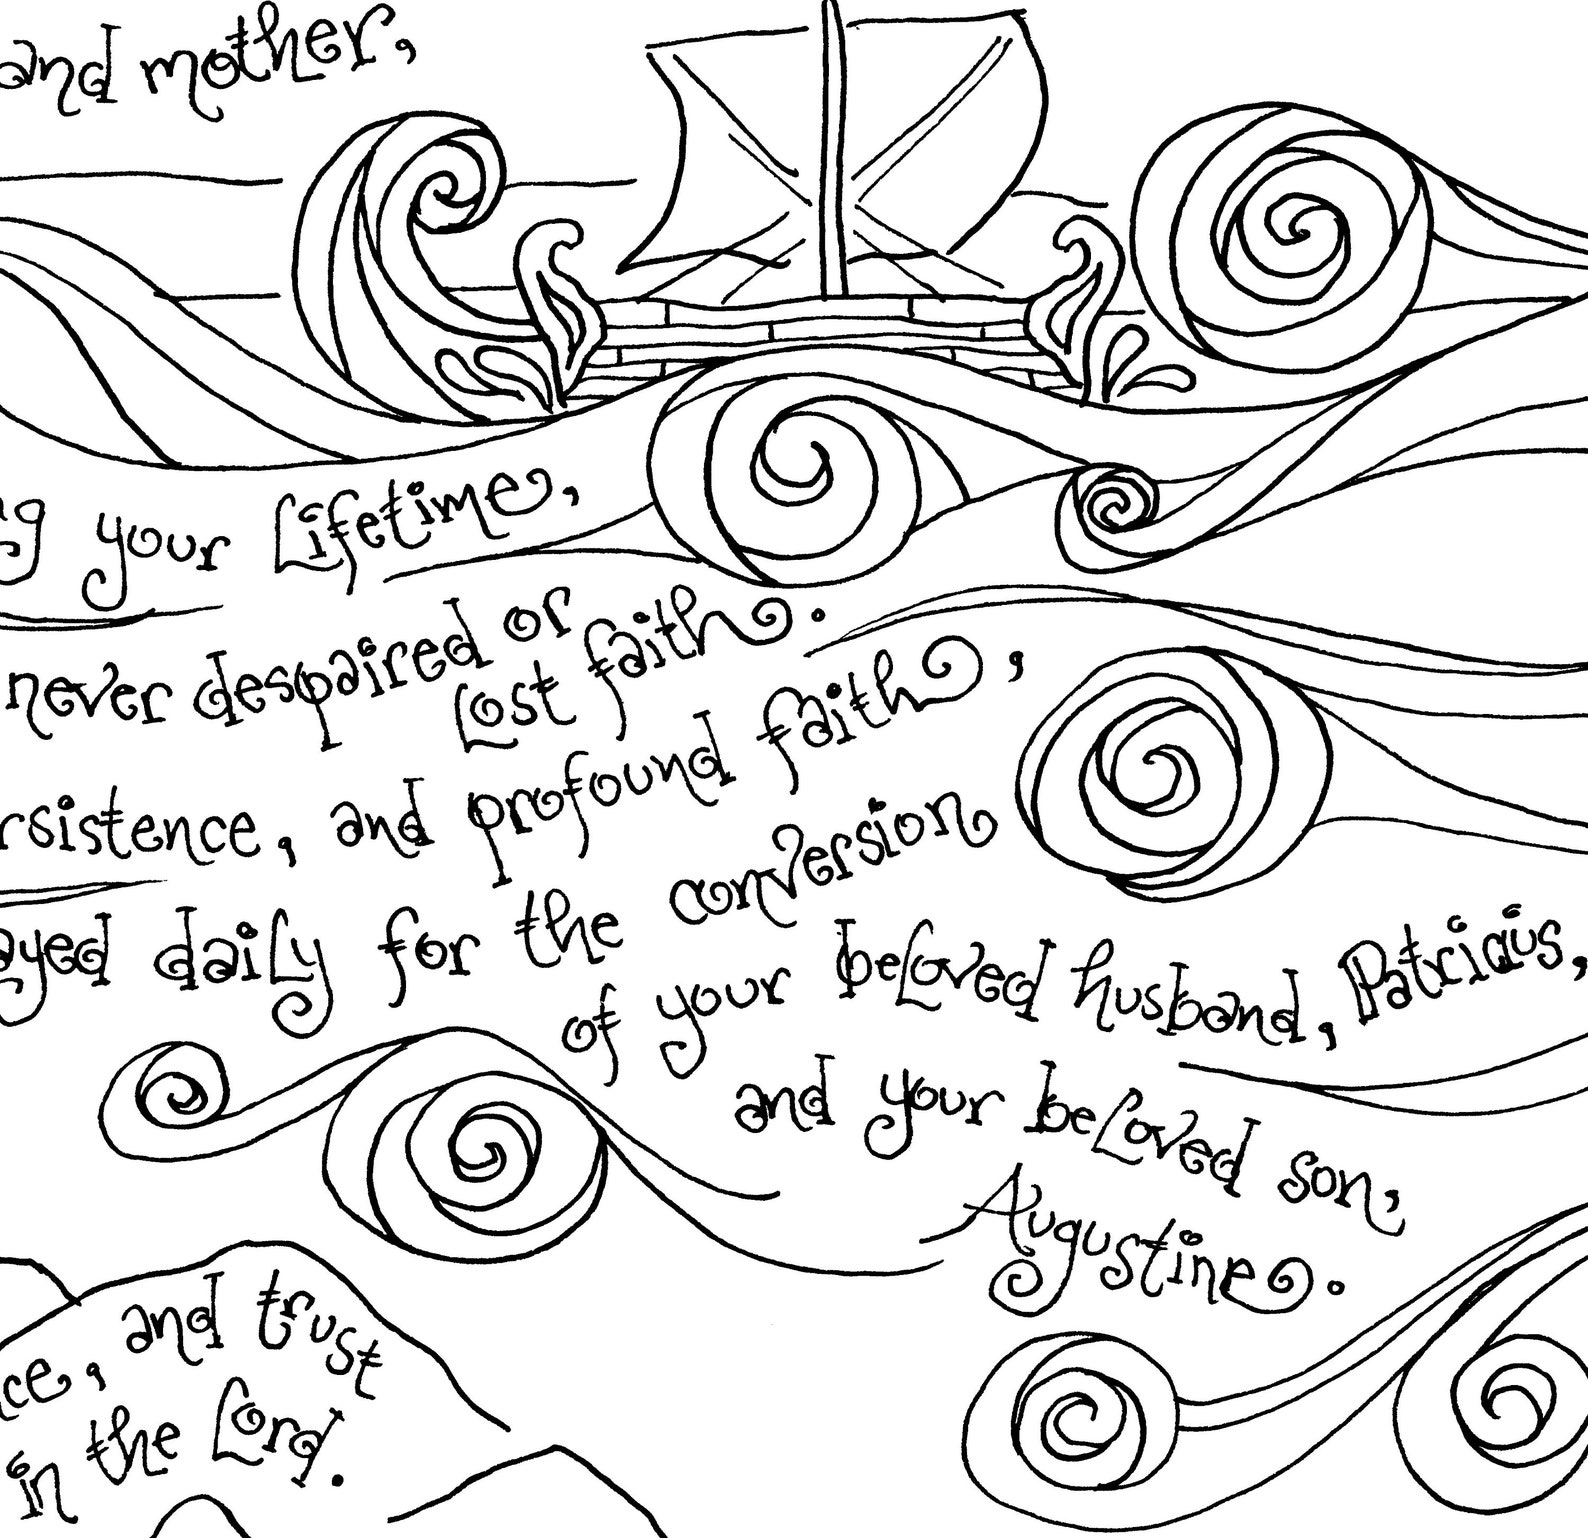 and mother,
g your Lifetime,
never despaired or
Lost faith.
rsistence, and profound faith,
ayed daily for the conversion
of your beloved husband, Patricius,
and your beloved son,
Augustine.
ce, and trust
in the Lord.